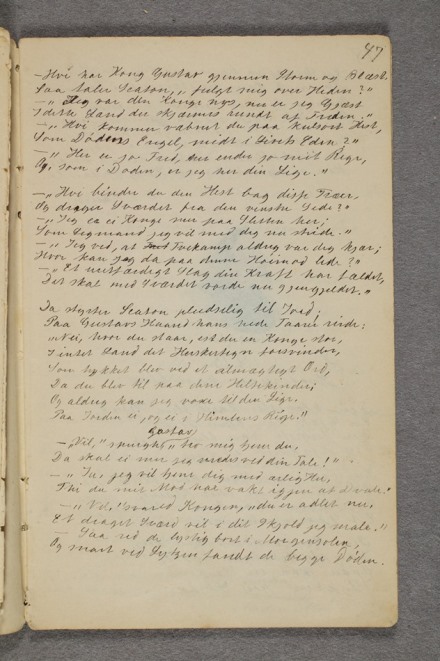 47
— Hvi har Kong Gustav gjennem Storm og Blæst
Saa taler Seaton, „ fulgt mig over Heden?"
— „ Jeg var den Konge nys, nu er jeg Gjæst
I dette Land der skjærmes rundt af Freden."
— „ Hvi kommer væbnet du paa kulsort Hest,
Som Dødens Engel, midt i Livets Eden?"
— „ Her er jo Fred, her ender jo mit Rige,
Og som i Døden, er jeg her din Lige."
— „ Hvi binder du din Hest bag disse Træer,
Og drager Sværdet fra den venstre Side?"
— „ Jeg ei Konge mer paa Sletten her;
Som jeg mand, jeg vil med dig nu stride."
— „ Jeg ved, at Tvekamp aldrig var dig kjær;
Hvor kan jeg da paa denne Haan lide?"
— „ Et uretfærdigt Slag din Kraft har fældet,
Det skal med Sværdet vorde nu gjengjeldet."
Da styrter Seaton pludselig til Jord;
Paa Gustavs Haand hans hede Taare rinder:
„ Nei, hvor du staar, est du en Konge stor,
I intet Land det Herskertegn forsvinder,
Som trykket blev ved et almægtigt Ord,
Da du blev til paa dine Heltekinder;
Og aldrig kan jeg voxe til din Lige
Paa Jorden ei, og ei i Himlens Rige."
Gustav
— „ Vil," spurgte, „ bro mig hen du,
Da skal ei mer jeg vredes ved din Tale!"
— „ Ja, jeg vil hen dig med ærlig Hu,
Thi du mit Mod har vakt igjen af Dvale."
— „ Vel," svared Kongen, „ du er adlet nu,
Et draget Sværd vil i dit Skjold jeg male."
— Saa red de lystig bort i Morgensolen,
Og snart ved Lützen fandt de begge Døden.